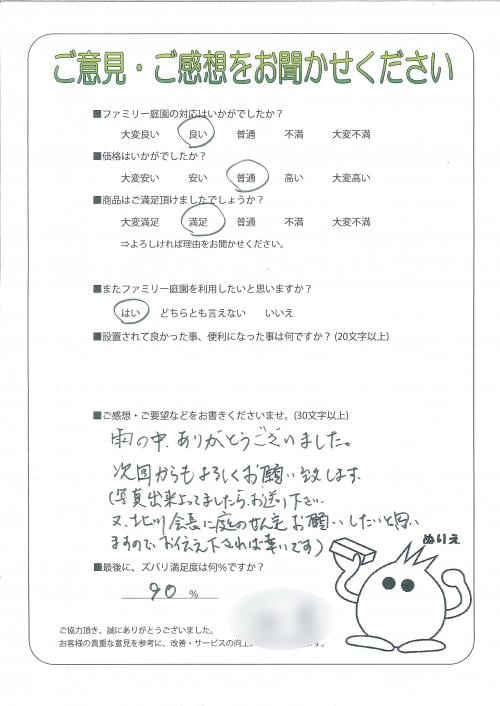 ご意見・ご感想をお聞かせください
■ファミリー庭園の対応はいかがでしたか？
大変良い 良い 普通 不満 大変不満
■価格はいかがでしたか？
大変安い 安い 普通 高い 大変高い
■商品はご満足頂けましたでしょうか？
大変満足 満足 普通 不満 大変不満
⇒よろしければ理由をお聞かせください。
■またファミリー庭園を利用したいと思いますか？
はい どちらとも言えない いいえ
■設置されて良かった事、便利になった事は何ですか？(20文字以上)
■ご感想・ご要望などをお書きくださいませ。(30文字以上)
雨の中、ありがとうございました。
次回からもよろしくお願い致します。
(写真出来上ってましたら、お送り下さい
又、北川会長に庭のせん定お願いしたいと思い
ますので、お伝え下されば幸いです)
ぬりえ
■最後に、ズバリ満足度は何%ですか？
90 %
ご協力頂き、誠にありがとうございました。
お客様の貴重な意見を参考に、改善・サービスの向上
ます。